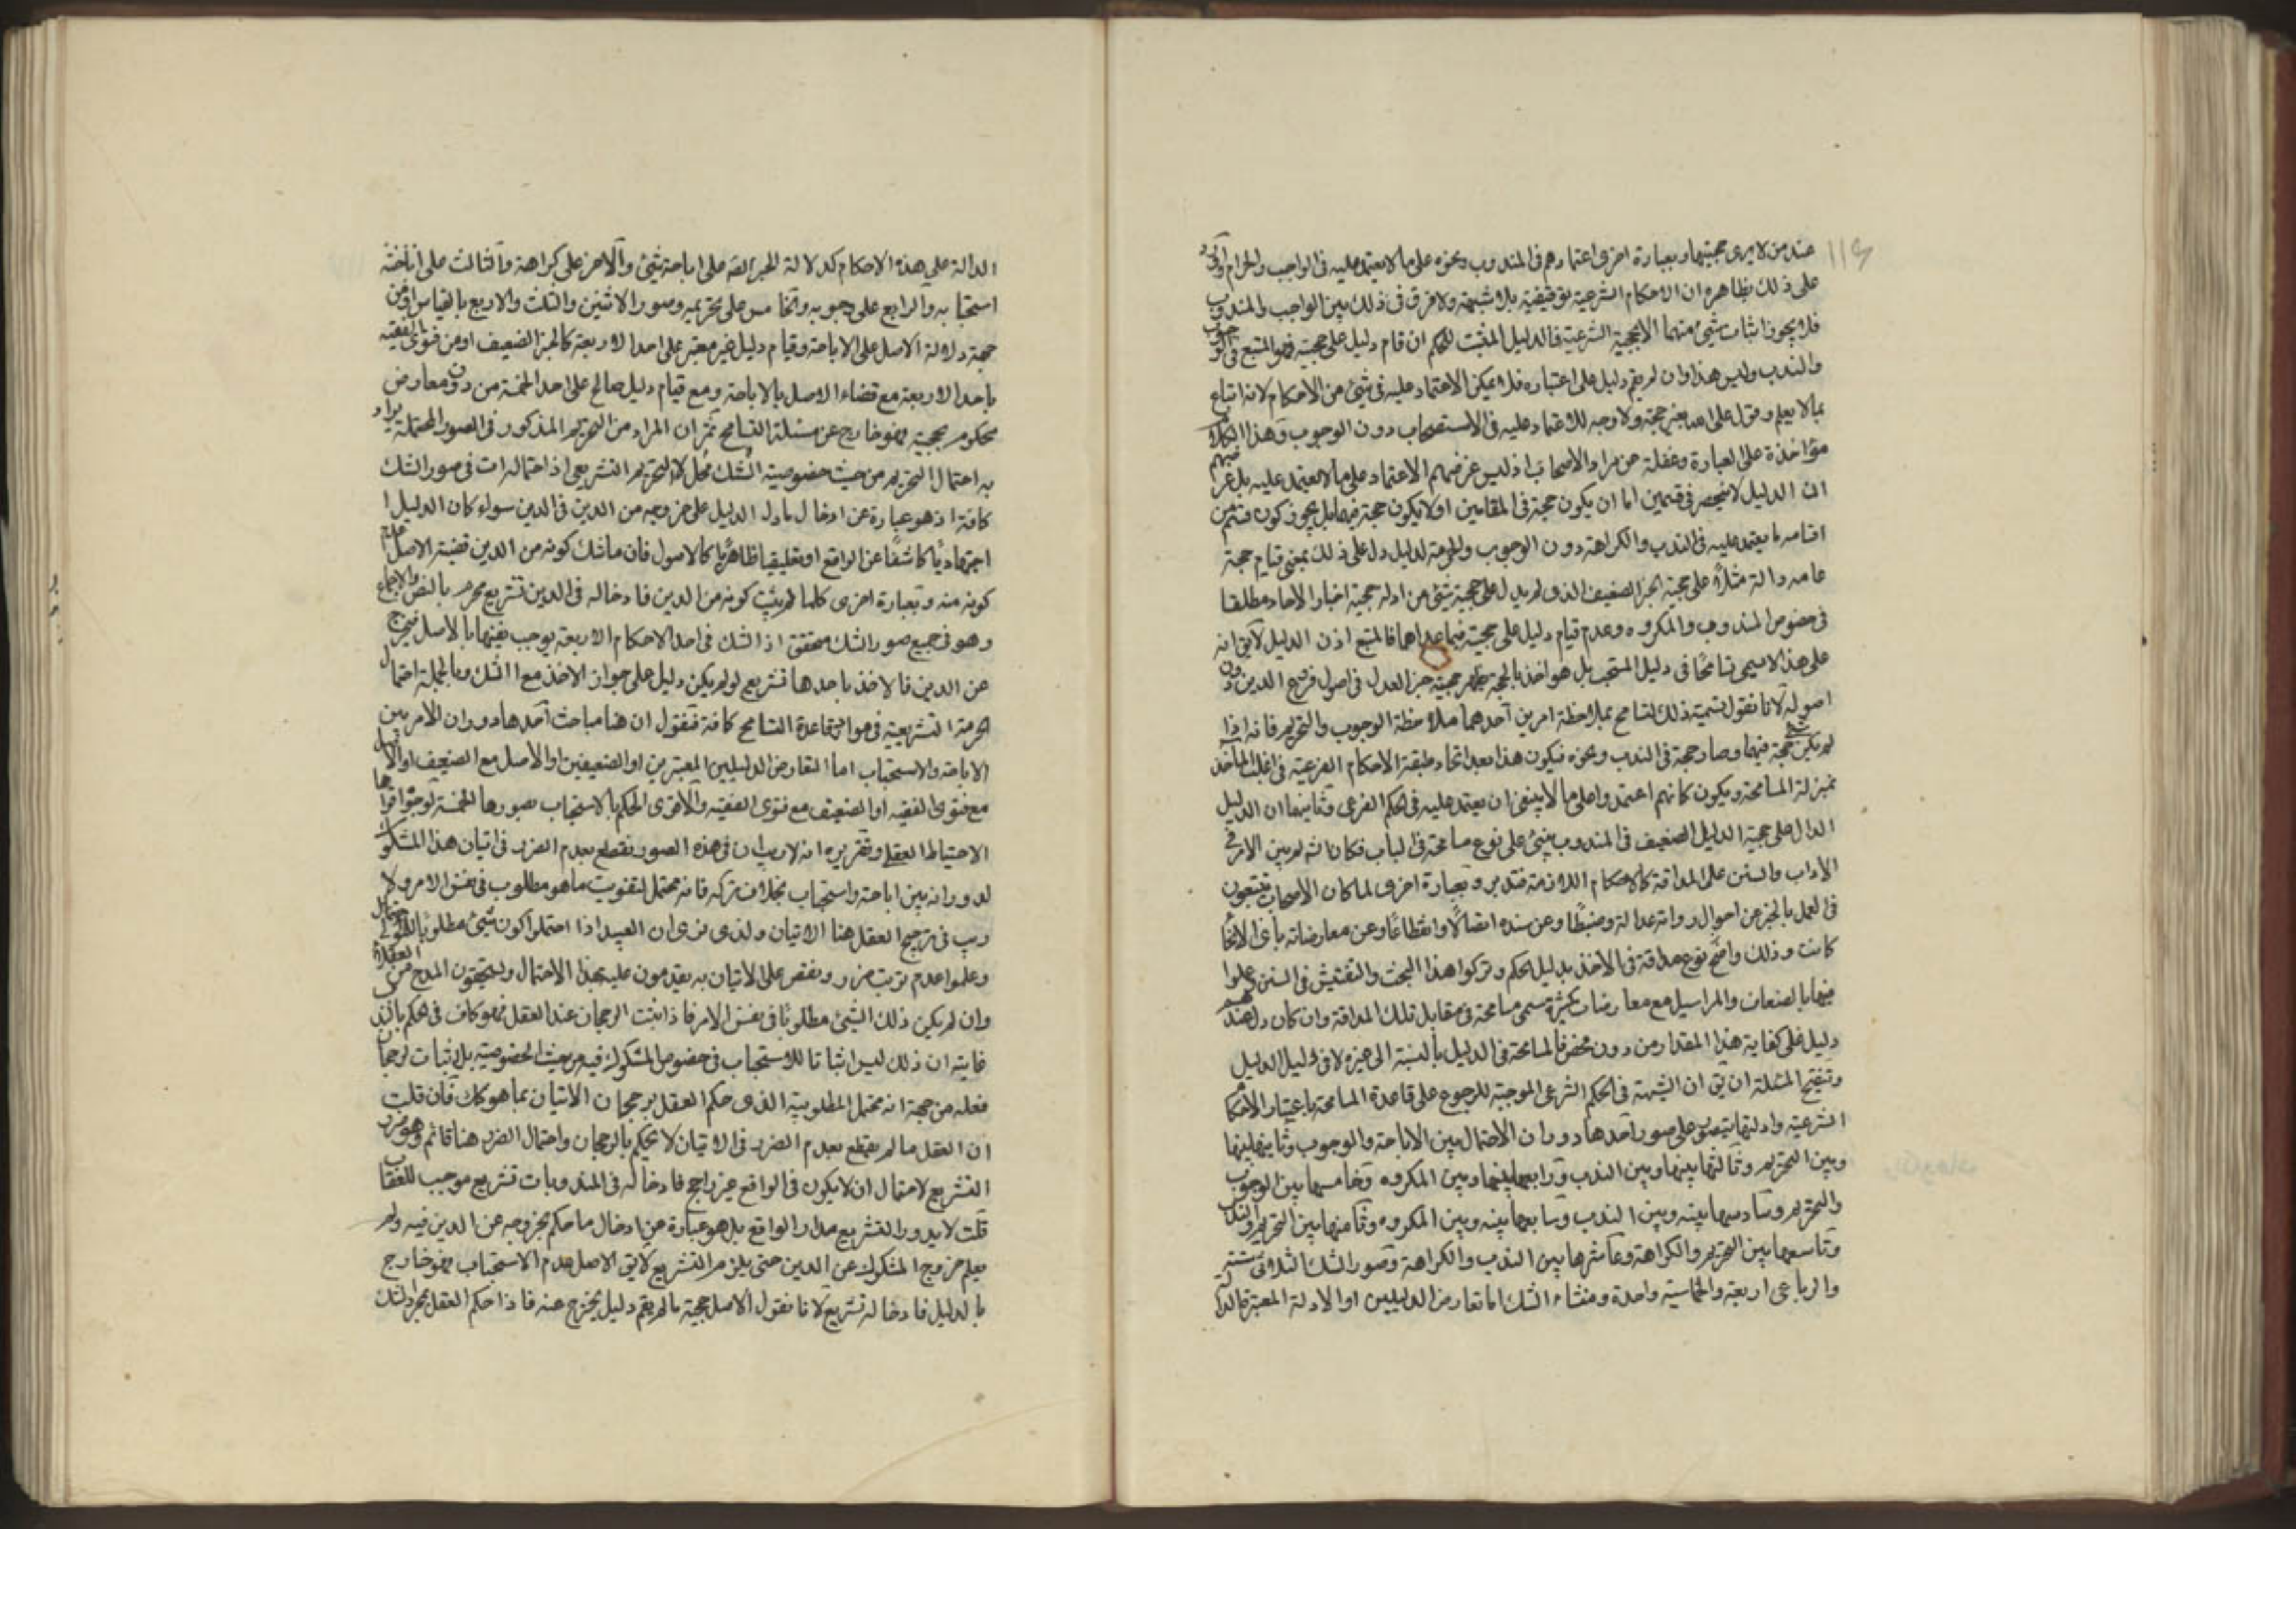 عند من لا يرى حجيتها وبعبارة اخرى اعتمادهم فى المندوب ونحوه على ما لا يعتمد عليه فى الواجب والحرام
على ذلك بظاهره ان الاحكام الشرعية توقيفية بلا شبهة ولا فرق فى ذلك بين الواجب والمندوب
فلا يجوز اثبات شيئ منهما الا بحجية الشرعية فالدليل المثبت للحكم ان قام دليل على حجيته فهو المتبع فى الوجوب
والندب وليس هذا وان لم يقم دليل على اعتباره فلا يمكن الاعتماد عليه فى شيئ من الاحكام لانه اتباع
بما لا يعلم وقول على الله بغير حجة ولا وجه للاعتماد عليه فى الاستصحاب دون الوجوب وهذا الكلام
مؤاخذة على العبارة وغفلة عن مراد الاصحاب اذ ليس غرضهم الاعتماد على ما لا يعتمد عليه بل غرضهم
ان الدليل لا ينحصر فى قسمين اما ان يكون حجة فى المقامين او لا يكون حجة فيهما بل يجوز كون قسم من
اقسامه ما يعتمد عليه فى الندب والكراهة دون الوجوب والحرمة لدليل دل على ذلك بمعنى قيام حجة
عامه دالة مثلاً على حجية الخبر الضعيف الذى لم يدل على حجيته شيئ من ادلة حجية اخبار الاحاد مطلقا
فى خصوص المندوب والمكروه وعدم قيام دليل على حجيته فيما عداهما فالمتبع اذن الدليل لا يق انه
على هذا لا يسمى تسامحًا فى دليل المستحب بل هو اخذ بالحجة نظير حجية خبر العدل فى اصول فروع الدين دون
اصوله لانا نقول تسمية ذلك تسامح بملاحظة امرين احدهما ملاحظة الوجوب والتحريم فانه اذا
لم يكن شيئ حجة فيهما وصار حجة فى الندب ونحوه فيكون هذا بعد اتحاد طبقة الاحكام الفرعية فى اغلب المأخذ
بمنزلة المسامحة ويكون كانهم اعتمدوا على ما لا ينبغى ان يعتمد عليه فى الحكم الفرعى وثانيهما ان الدليل
الدال على حجية الدليل الضعيف فى المندوب يبنى على نوع مسامحة فى الباب فكان الله لم يبن الامر فى
الآداب والسنن على المداقة كالاحكام اللازمة فتدبر وبعبارة اخرى لما كان الاصحاب يتتبعون
فى العمل بالخبر عن احوال رواته عدالة وضبطًا وعن سنده اتصالًا وانقطاعًا وعن معارضاته باى الانحاء
كانت وذلك واضح نوع مداقة فى الاخذ بدليل الحكم وتركوا هذا البحث والتفتيش فى السنن وعملوا
فيها بالضعاف والمراسيل مع معارضات كثيرة سمى مسامحة فى مقابل تلك المداقة وان كان ذلك
دليل على كفاية هذا المقدار من دون فالمسامحة فى الدليل بالنسبة الى غيره لا فى دليل الدليل
وتنقيح المسئلة ان يق ان الشبهة فى الحكم الشرعى الموجبة للرجوع على قاعدة المسامحة باعتبار الاحكام
الشرعية وادلتها يتصور على صور احدها دوران الاحتمال بين الاباحة والوجوب وثانيها بينها
وبين التحريم وثالثها بينها وبين الندب ورابعها بينها وبين المكروه وخامسها بين الوجوب
والتحريم وسادسها بينه وبين الندب وسابعها بينه وبين المكروه وثامنها بين التحريم والندب
وتاسعها بين التحريم والكراهة وعاشرها بين الندب والكراهة وصور الشك الثلاثى
والرباعى اربعة والخماسية واحدة ومنشاء الشك اما تعارض الدليلين او الادلة المعتبرة
الدالة على هذه الاحكام كدلالة الخبر الثقة على اباحة شيئ والآخر على كراهة والثالث على
استحبابه والرابع على وجوبه والخامس على تحريمه وصور الاثنين والثلث والاربع بالقياس او من
جهة دلالة الاصل على الاباحة وقيام دليل غير معتبر على احد الاربعة كالخبر الضعيف او من فتوى الفقيه
باحد الاربعة مع قضاء الاصل بالاباحة ومع قيام دليل صالح على احد الخمسة من دون معارض
محكوم بحجية فهو خارج عن مسئلة التسامح ثم ان المراد من التحريم المذكور فى الصور المحتملة يراد
به احتمال التحريم من حيث خصوصية الشك محل لا التحريم التشريعى اذ احتماله ات فى صور الشك
كافة اذ هو عبارة عن ادخال ما دل الدليل على خروجه من الدين فى الدين سواء كان الدليل
اجتهاديًا كاشفًا عن الواقع او تعليقيا ظاهريًا كالاصول فان ما شك كونه من الدين قضية الاصل عدم
كونه منه وبعبارة اخرى كلما لم يثبت كونه من الدين فادخاله فى الدين تشريع محرم بالنص والاجماع
وهو فى جميع صور الشك متحقق اذ الشك فى احد الاحكام الاربعة يوجب نفيها بالاصل فيخرج
عن الدين فالاخذ باحدها تشريع لو لم يكن دليل على جواز الاخذ مع الشك وبالجملة احتمال
الحرمة التشريعية فى موارد قاعدة التسامح كافة فنقول ان هنا مباحث احدها دوران الامر بين
الاباحة والاستحباب اما لتعارض الدليلين المعتبرين او الضعيفين او الاصل مع الضعيف او الاصل
مع فتوى الفقيه او الضعيف مع فتوى الفقيه والاقوى الحكم بالاستحباب بصورها الخمسة لوجوه اقواها
الاحتياط العقلى وتقريره انه لا ريب ان فى هذه الصور نقطع بعدم الضرر فى اتيان هذا المشكوك
لدورانه بين اباحة واستحباب بخلاف تركه فانه محتمل لتفويت ما هو مطلوب فى نفس الامر ولا
ريب فى ترجيح العقل هنا الاتيان ولذى نرى ان العبيد اذا احتملوا كون شيئ مطلوبًا للمولى
وعلموا عدم ترتب ضرر ونقص على الاتيان به يقدمون عليه بهذا الاحتمال ويستحقون المدح من العقلاء
وان لم يكن ذلك الشيئ مطلوبًا فى نفس الامر فاذا ثبت الرجحان عند العقل فهو كاف فى حكم بالندب
غايته ان ذلك ليس اثباتا للاستحباب فى خصوص المشكوك فيه من حيث الخصوصية بل اثبات لرجحان
فعله من جهة انه محتمل المطلوبية الذى حكم العقل برجحان الاتيان بما هو كك فان قلت
ان العقل ما لم يقطع بعدم الضرر فى الاتيان لا يحكم بالرجحان واحتمال الضرر هنا قائم وهو ضرر
التشريع لاحتمال ان لا يكون فى الواقع غير راجح فادخاله فى المندوبات تشريع موجب للعقاب
قلت لا يدور التشريع مدار الواقع بل هو عبارة عن ادخال ما حكم بخروجه عن الدين فيه ولم
يعلم خروج المشكوك عن الدين حتى يلزم التشريع لا يق الاصل عدم الاستحباب فهو خارج
بالدليل فادخاله تشريع لانا نقول الاصل حجية ما لم يقم دليل يخرج عنه فاذا حكم العقل